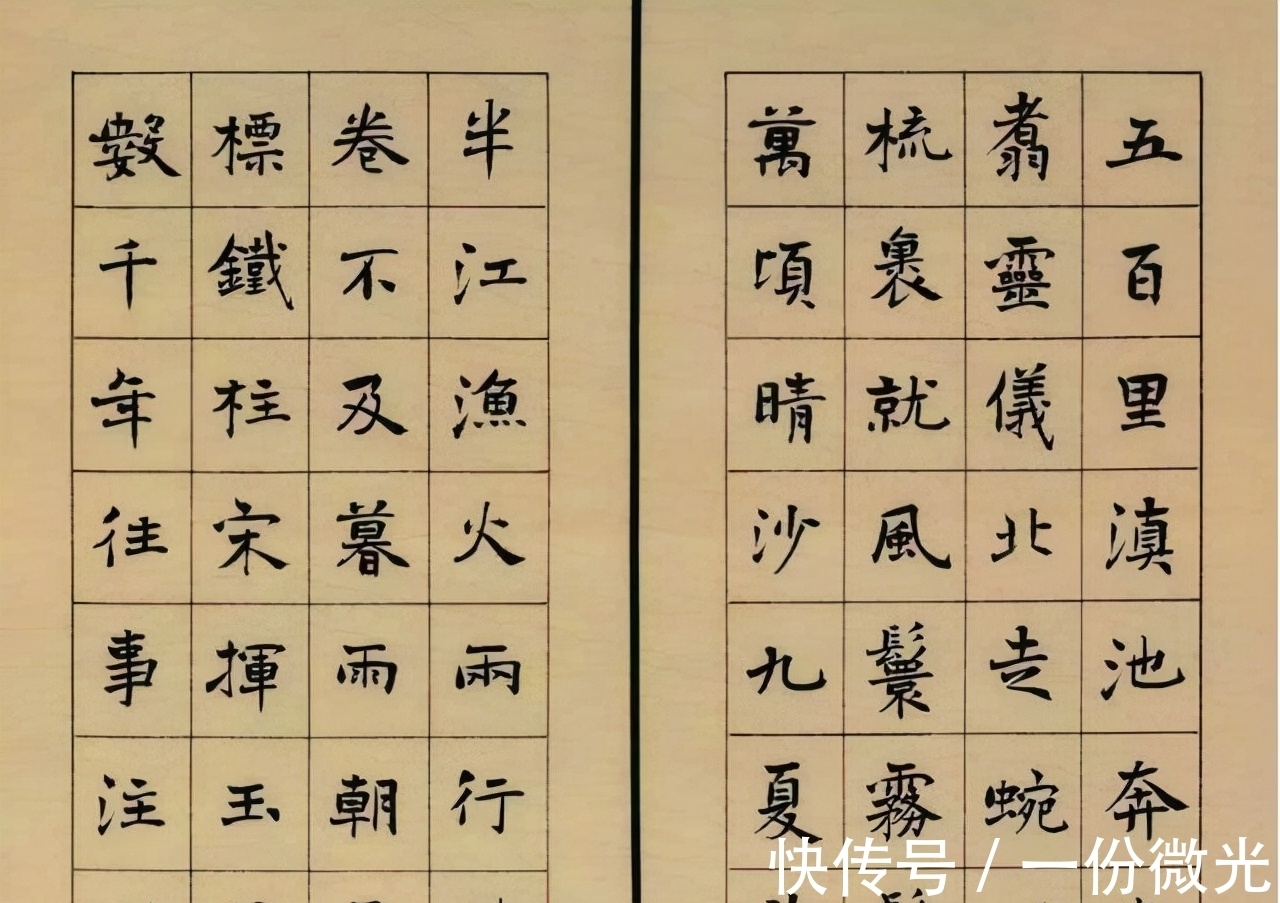 五百里滇池奔
翥靈儀北走蜿
梳裹就風鬟霧
萬頃晴沙九夏
半江漁火兩行
卷不及暮雨朝
標鐵柱宋揮玉
數千年往事注
快传号 / 一份微光